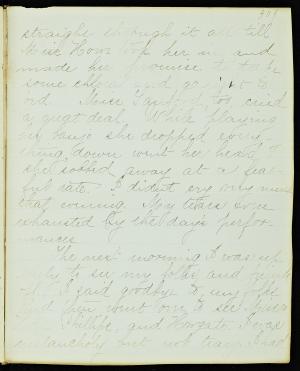 301
straight through it all till
Miss Howe took her in and
made her promise to take
some and go to
Miss too cried
a great deal. While playing
my she dropped every
thing down went her head &
she sobbed away at a fear
ful rate. I didn't cry very much
that evening. My tears were
exhausted by the day's perfor-
mances.
The next morning I was up
early to see my folks and
I said goodbye to my folks
and then went on to see
Phillips, and Howgate. I was
melancholy but not teary. I had